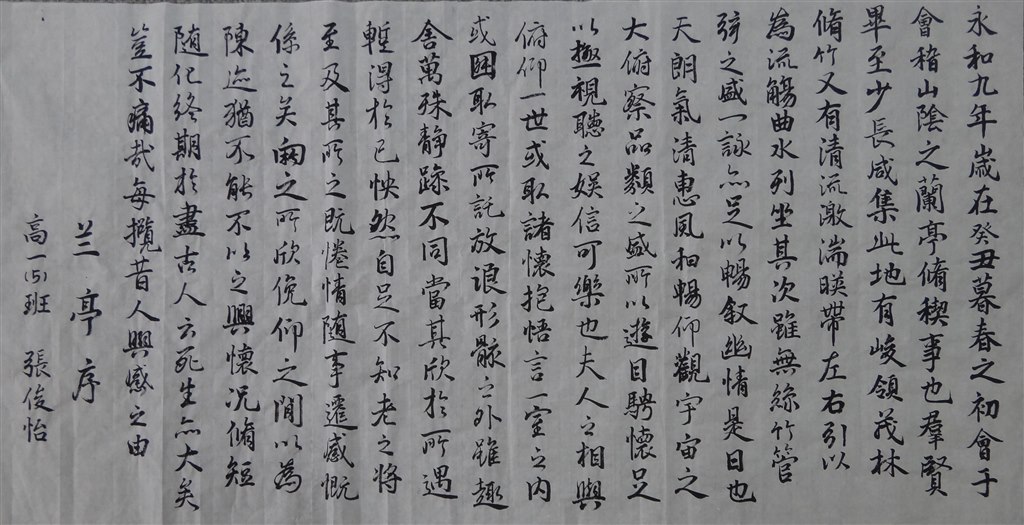 永和九年歲在癸丑暮春之初會于
會稽山陰之蘭亭脩稧事也羣賢
畢至少長咸集此地有峻領茂林
脩竹又有清流激湍暎帶左右引以
為流觴曲水列坐其次雖無絲竹管
弦之盛一詠亦足以暢叙幽情是日也
天朗氣清惠風和暢仰觀宇宙之
大俯察品類之盛所以遊目騁懷足
以極視聽之娛信可樂也夫人之相與
俯仰一世或取諸懷抱悟言一室之内
或因取寄所託放浪形骸之外雖趣
舍萬殊靜躁不同當其欣於所遇
暫得於己怏然自足不知老之將
至及其所之既惓情随事遷感慨
係之矣向之所欣俛仰之間以為
陳迹猶不能不以之興懷況脩短
随化終期於盡古人云死生亦大矣
豈不痛哉每攬昔人興感之由
兰亭序
高一(5)班 張俊怡